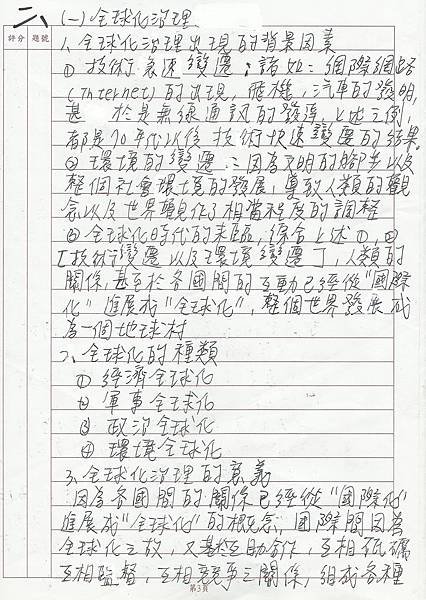 二、
評分 題號
(一)全球化治理
1、全球化治理出現的背景因素
① 技術急速變遷:諸如:網際網路
(Internet)的出現,飛機,汽車的發明,
甚 於是無線通訊的發達,上述之例,
都是70年代以後技術快速變遷的結果
② 環境的變遷:因為文明的腳步以及
整個社會環境的發展,導致人類的觀
念以及世界觀作了相當程度的調整
③ 全球化時代的來臨,綜合上述①,②
「技術變遷以及環境變遷」,人類的
關係,甚至於各國間的互動已經從“國際
化”進展成“全球化”,整個世界發展成
為一個地球村
2、全球化的種類
① 經濟全球化
② 軍事全球化
③ 政治全球化
④ 環境全球化
3、全球化治理的意義
因為各國間的關係已經從“國際化”
進展成“全球化”的概念;國際間因為
全球化之故,又基於互助合作,互相砥礪
互相監督,互相競爭之關係,組成各種
第3頁